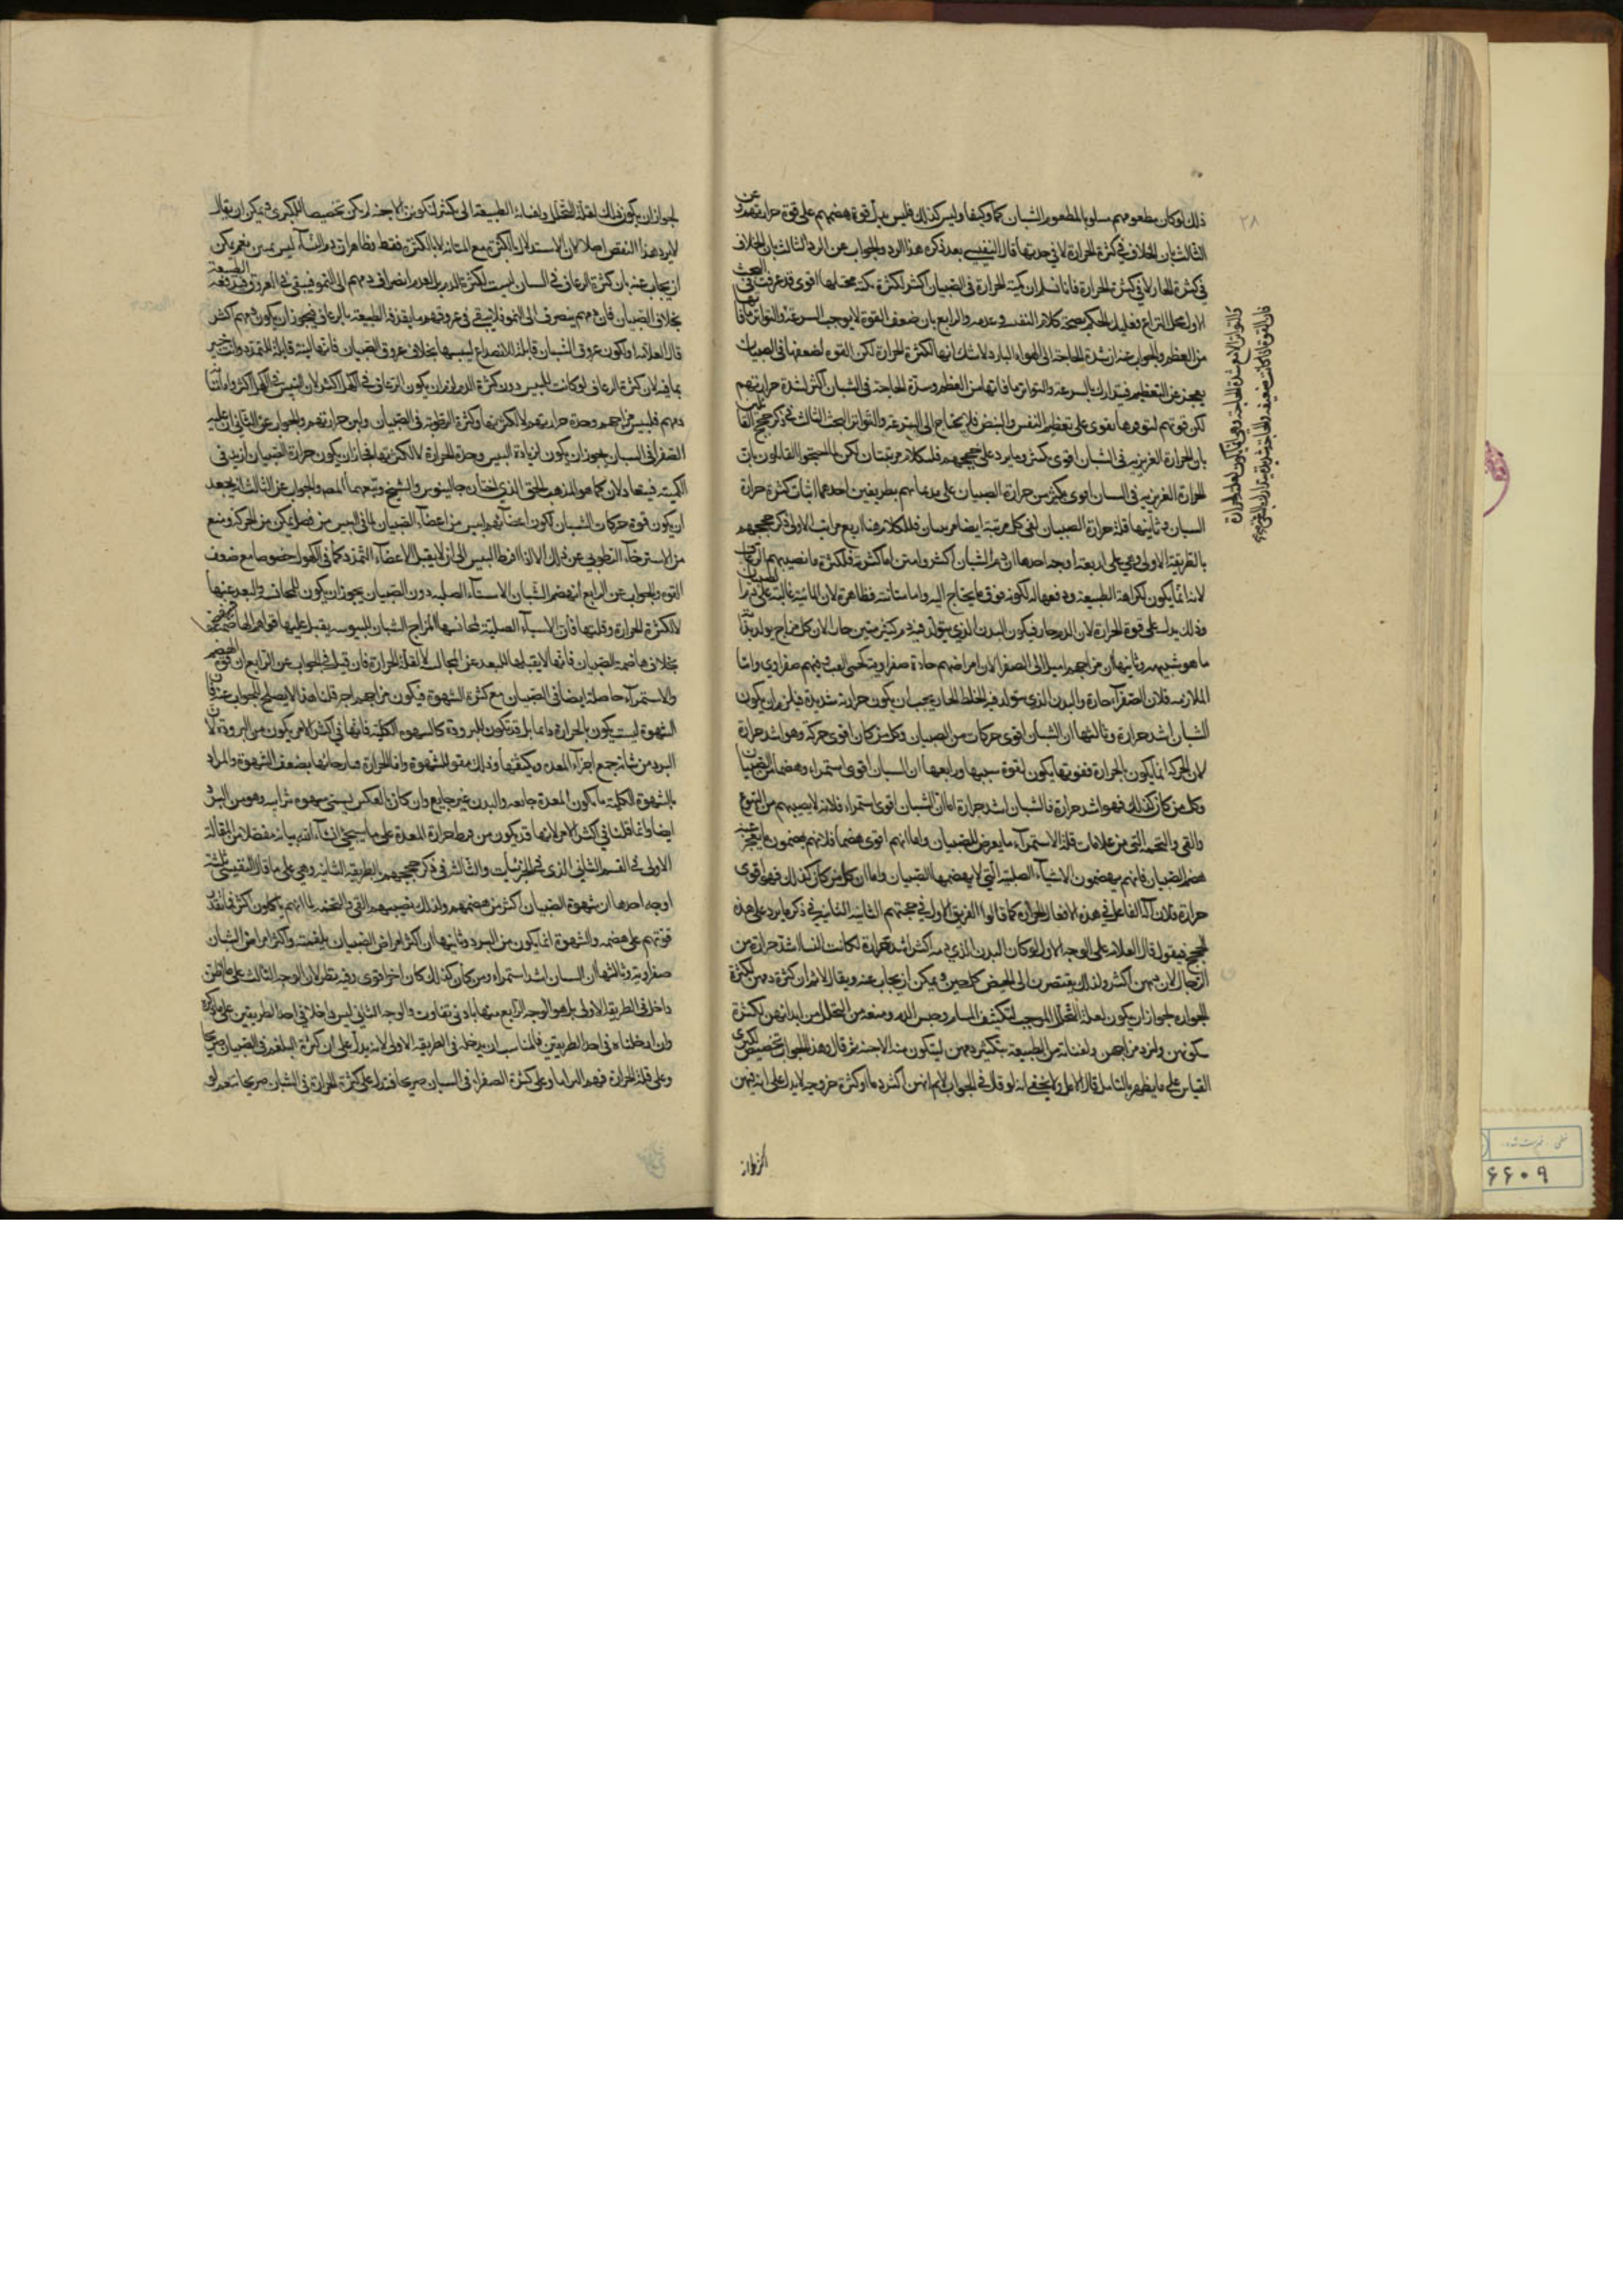 ٢٨
ذلك لو كان مطعومهم مساويا لمطعوم الشبان كما وكيفا وليس كذلك فليس يدل قوة هضمهم على قوة حرارتهم وعن
الثالث بان الخلاف في كثرة الحرارة لا في حدتها قال النفيسي بعد ذكره هذا الرد والجواب عن الرد الثالث بان الخلاف
في كثرة الحار لا في كثرة الحرارة فانا نسلم ان كمية الحرارة في الصبيان اكثر لكثرة كمية محلها اقوى قد عرفت في البحث
الاول محل النزاع وتعليل الحكم بصحة كلام النفيسي وعدمه والرابع بان ضعف القوة لا يوجب السرعة والتواتر ما فاتها
من العظم والجواب عنه ان شدة الحاجة الى الهواء البارد لا شك انها لكثرة الحرارة لكن القوة لضعفها في الصبيان
يعجز عن التعظيم فيتدارك بالسرعة والتواتر ما فاتها من العظم وشدة الحاجة في الشبان اكثر لشدة حرارتهم
لكن قوتهم لتوفرها تقوى على تعظيم النفس والنبض فلا يحتاج الى السرعة والتواتر البحث الثالث في ذكر حجج القائلين
بان الحرارة الغريزية في الشبان اقوى بكثير وما يرد على حججهم فللكلام مرتبتان لكن لما احتجوا القائلون بان
الحرارة الغريزية في الشبان اقوى بكثير من حرارة الصبيان على مدعاهم بطريقين احدهما اثبات كثرة حرارة
الشبان وثانيها قلة حرارة الصبيان ففي كل مرتبة ايضا مرتبتان فللكلام هنا اربع مراتب الاولى ذكر حججهم
بالطريقة الاولى وهي على اربعة اوجه احدها ان دم الشبان اكثر وامتن اما كثرته فلكثرة ما يصيبهم الرعاف
لانه انما يكون لكراهة الطبيعة ودفعها له لكونه فوق ما يحتاج اليه واما متانته فظاهرة لان المائية غالبة على دم الصبيان
وذلك يدل على قوة الحرارة لان الدم حار فيكون البدن الذي يتولد فيه دم كثير متين حار لان كل مزاج يولد
ما هو شبيه به وثانيها ان مزاجهم اميل الى الصفراء لان امراضهم حادة صفراوية كحمى الغب وقيئهم صفراوي واما
الملازمة فلان الصفراء حارة والبدن الذي يتولد فيه الخلط الحار يجب ان يكون حرارته شديدة فيلزم ان يكون
الشبان اشد حرارة وثالثها ان الشبان اقوى حركات من الصبيان وكل من كان اقوى حركة فهو اشد حرارة
لان الحركة انما يكون بالحرارة فقوتها يكون لقوة سببها ورابعها ان الشبان اقوى استمراء وهضما من الصبيان
وكل من كان كذلك فهو اشد حرارة فالشبان اشد حرارة اما ان الشبان اقوى استمراء فلانه لا يصيبهم من التهوع
والقيء والتخمة التي من علامات قلة الاستمراء ما يعرض للصبيان واما انهم اقوى هضما فلانهم يهضمون ما يعجز عنه
هضم الصبيان فانهم يهضمون الاشياء الصلبة التي لا يهضمها الصبيان واما ان كل من كان كذلك فهو اقوى
حرارة فلان آلة الفاعل في هذه الافعال الحرارة كما قالوا الفريق الاول في حجتهم الثانية الثانية في ذكر ما يرد على هذه
الحجج فيقول قال العلامة على الوجه الاول لو كان البدن الذي دمه اكثر اشد حرارة لكانت النساء اشد حرارة من
الرجال لان دمهن اكثر ولذلك يفتقرن الى الحيض كل حين ويمكن ان يجاب عنه ويقال لا نسلم ان كثرة دمهن لكثرة
الحرارة لجواز ان يكون لقلة التحلل الموجب لتكثيف المسام وحبس الدم ومنعه من التحلل من ابدانهن لكثرة
سكونهن ولبرد مزاجهن ولعناية من الطبيعة بتكثير دمهن ليتكون منه الاجنة ثم قال وهذا الجواب تخصيص كبرى
القياس على ما يظهر بالتامل قال الاملي ولا يخفى انه لو قال في الجواب لا نم انهن اكثر دما وكثرة خروجه لا يدل على انه فيهن
لجواز ان يكون ذلك لقلة التحلل ولعناية الطبيعة الى كثرة لتكون الاجنة لم يكن تخصيصا للكبرى ويمكن ان يقال
لا يرد هذا النقض اصلا لان الاستدلال بالكثرة مع المتانة لا بالكثرة فقط وظاهر ان دم النساء ليس بمتين نعم يمكن
ان يجاب عنه بان كثرة الرعاف في الشبان ليست لكثرة الدم بل لعدم انصراف دمهم الى النمو فيبقى في العروق فيدفعه الطبيعة
بخلاف الصبيان فان دمهم ينصرف الى النمو فلا يبقى في عروقهم ما يقذفه الطبيعة بالرعاف فيجوز ان يكون دمهم اكثر
قال العلامة او لكون عروق الشبان قابلة للانصداع ليبسها بخلاف عروق الصبيان فانها لينة قابلة للتمدد وانت خبير
بما فيه لان كثرة الرعاف لو كانت لليبس دون كثرة الدم لزم ان يكون الرعاف في الكهول اكثر لان اليبس في الكهول اكثر واما متانة
دمهم فليبس مزاجهم وحدة حرارتهم لا لكثرتها وكثرة الرطوبة في الصبيان ولين حرارتهم والجواب عن الثاني ان غلبة
الصفراء في الشبان يجوز ان يكون لزيادة اليبس وحدة الحرارة لا لكثرتها فجاز ان يكون حرارة الصبيان ازيد في
الكمية فيتعادلان كما هو المذهب الحق الذي اختاره جالينوس والشيخ وتبعهما المص والجواب عن الثالث انه يجوز
ان يكون قوة حركات الشبان لكون اعضائهم ايبس من اعضاء الصبيان لما في اليبس من فضل تمكن من الحركة ومنع
من الاسترخاء الرطوبي عن ذلك الا اذا افرط اليبس الى ان لا يقبل الاعضاء التمدد كما في الكهول خصوصا مع ضعف
القوة والجواب عن الرابع ان هضم الشبان الاشياء الصلبة دون الصبيان يجوز ان يكون للمجانسة والبعد عنها
لا لكثرة الحرارة وقلتها فان الاشياء الصلبة لمجانستها لمزاج الشبان لليبوسة يقبل عليها قواهم الهاضمة
بخلاف هاضمة الصبيان فانها لا يقبلها للبعد عن المجانسة لا لقلة الحرارة فان قيل في الجواب عن الرابع ان قوة الهضم
والاستمراء حاصلة ايضا في الصبيان مع كثرة الشهوة فيكون مزاجهم احر قلنا هذا لا يصلح للجواب عنه فان
الشهوة ليست يكون بالحرارة دائما بل قد تكون للبرودة كالشهوة الكلبية فانها في اكثر الامر يكون من البرودة لان
البرد من شانه جمع اجزاء المعدة وتكثيفها وذلك مقو للشهوة واما الحرارة فبارخائها يضعف الشهوة والمراد
بالشهوة الكلبية ما يكون المعدة جائعة والبدن غير جائع وان كان بالعكس يسمى
ايضا وانما قلنا في اكثر الامر لانها قد يكون من فرط حرارة المعدة على ما سيجيء ان شاء الله بيانه مفصلا من المقالة
الاولى في القسم الثاني الذي في الجزئيات والثالثة في ذكر حججهم بالطريقة الثانية وهي على ما قال النفيسي ثلثة
اوجه احدها ان شهوة الصبيان اكثر من هضمهم ولذلك يصيبهم القيء والتخمة لما انهم ياكلون اكثر مما يقدر
قوتهم على هضمه والشهوة انما يكون من البرد وثانيها ان اكثر امراض الصبيان بلغمية واكثر امراض الشبان
صفراوية وثالثها ان الشبان اشد استمراء ومن كان كذلك كان احر اقوى وفيه نظر لان الوجه الثالث على ما ظن
داخل في الطريقة الاولى بل هو الوجه الرابع منها بادنى تفاوت والوجه الثاني ليس داخلا في احد الطريقين على ما ذكره
وان ادخلناه في احد الطريقين فالمناسب ان يدخله في الطريقة الاولى لانه يدل على ان كثرة البلغم في الصبيان صريحا
وعلى قلة الحرارة فيهم التزاما وعلى كثرة الصفراء في الشبان صريحا فتدل على كثرة الحرارة في الشبان صريحا نعم لو
٤٦٠٩